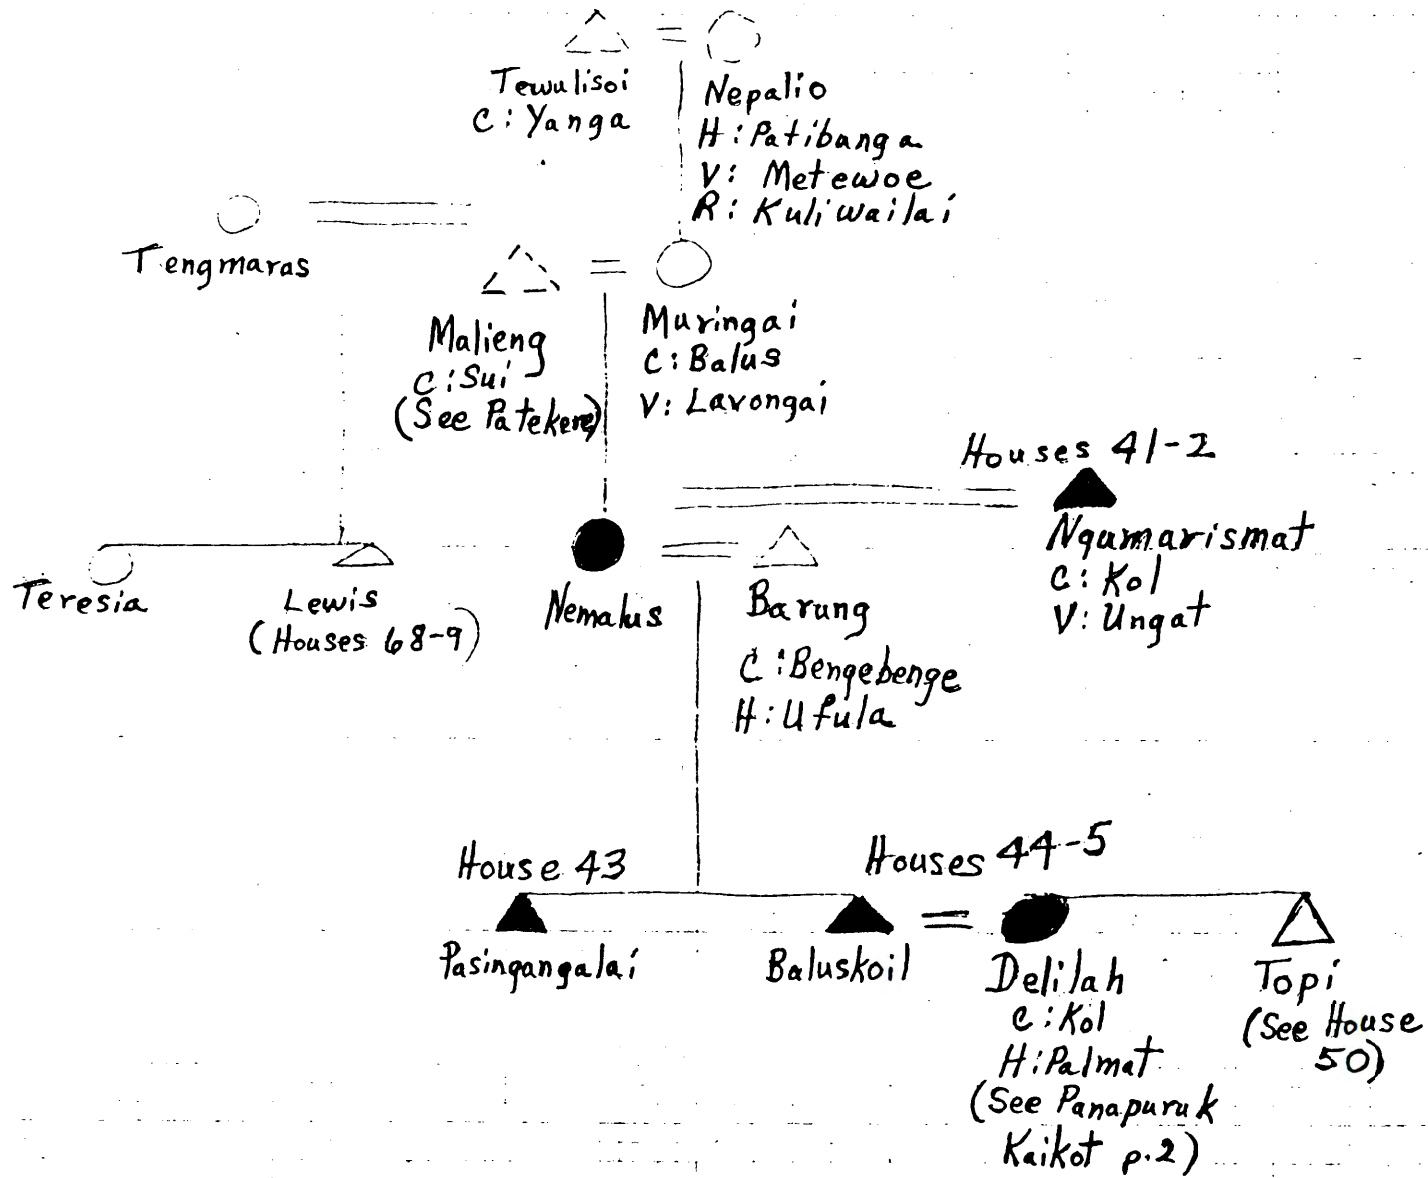 Tewulisoi
C: Yanga
Nepalio
H: Patibanga
V: Metewoe
R: Kuliwailai
Tengmaras
Malieng
C: Sui
(See Patekere)
Muringai
C: Balus
V: Lavongai
Houses 41-2
Ngumarismat
C: Kol
V: Ungat
Teresia
Lewis
(Houses 68-9)
Nemalus
Barung
C: Bengebenge
H: Ufula
House 43
Pasingangalai
Baluskoil
Houses 44-5
Delilah
C: Kol
H: Palmat
(See Panapuruk
Kaikot p.2)
Topi
(See House
50)